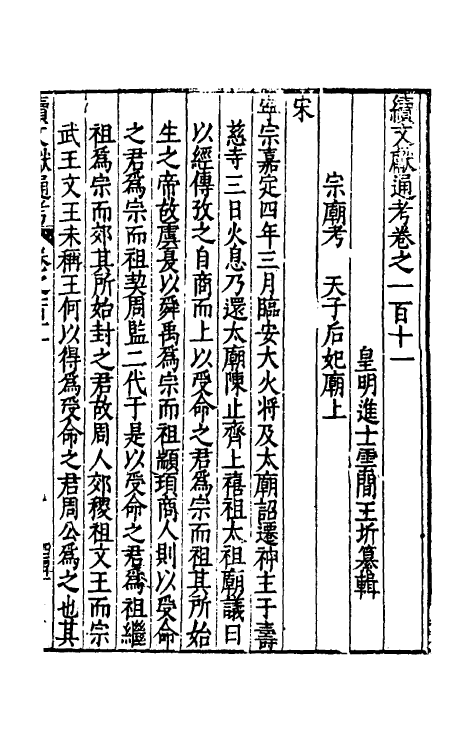 續文獻通考卷之一百十一
皇明進士雲間王圻纂輯
宗廟考　天子后妃廟上
宋
寧宗嘉定四年三月臨安大火將及太廟詔遷神主于壽
慈寺三日火息乃還太廟陳止齊上禧祖太祖廟議曰
以經傳攷之自商而上以受命之君爲宗而祖其所始
生之帝故虞夏以舜禹爲宗而祖顓頊商人則以受命
之君爲宗而祖契周監二代于是以受命之君爲祖繼
祖爲宗而郊其所始封之君故周人郊稷祖文王而宗
武王文王未稱王何以得爲受命之君周公爲之也其
續文獻通考
卷之百十一